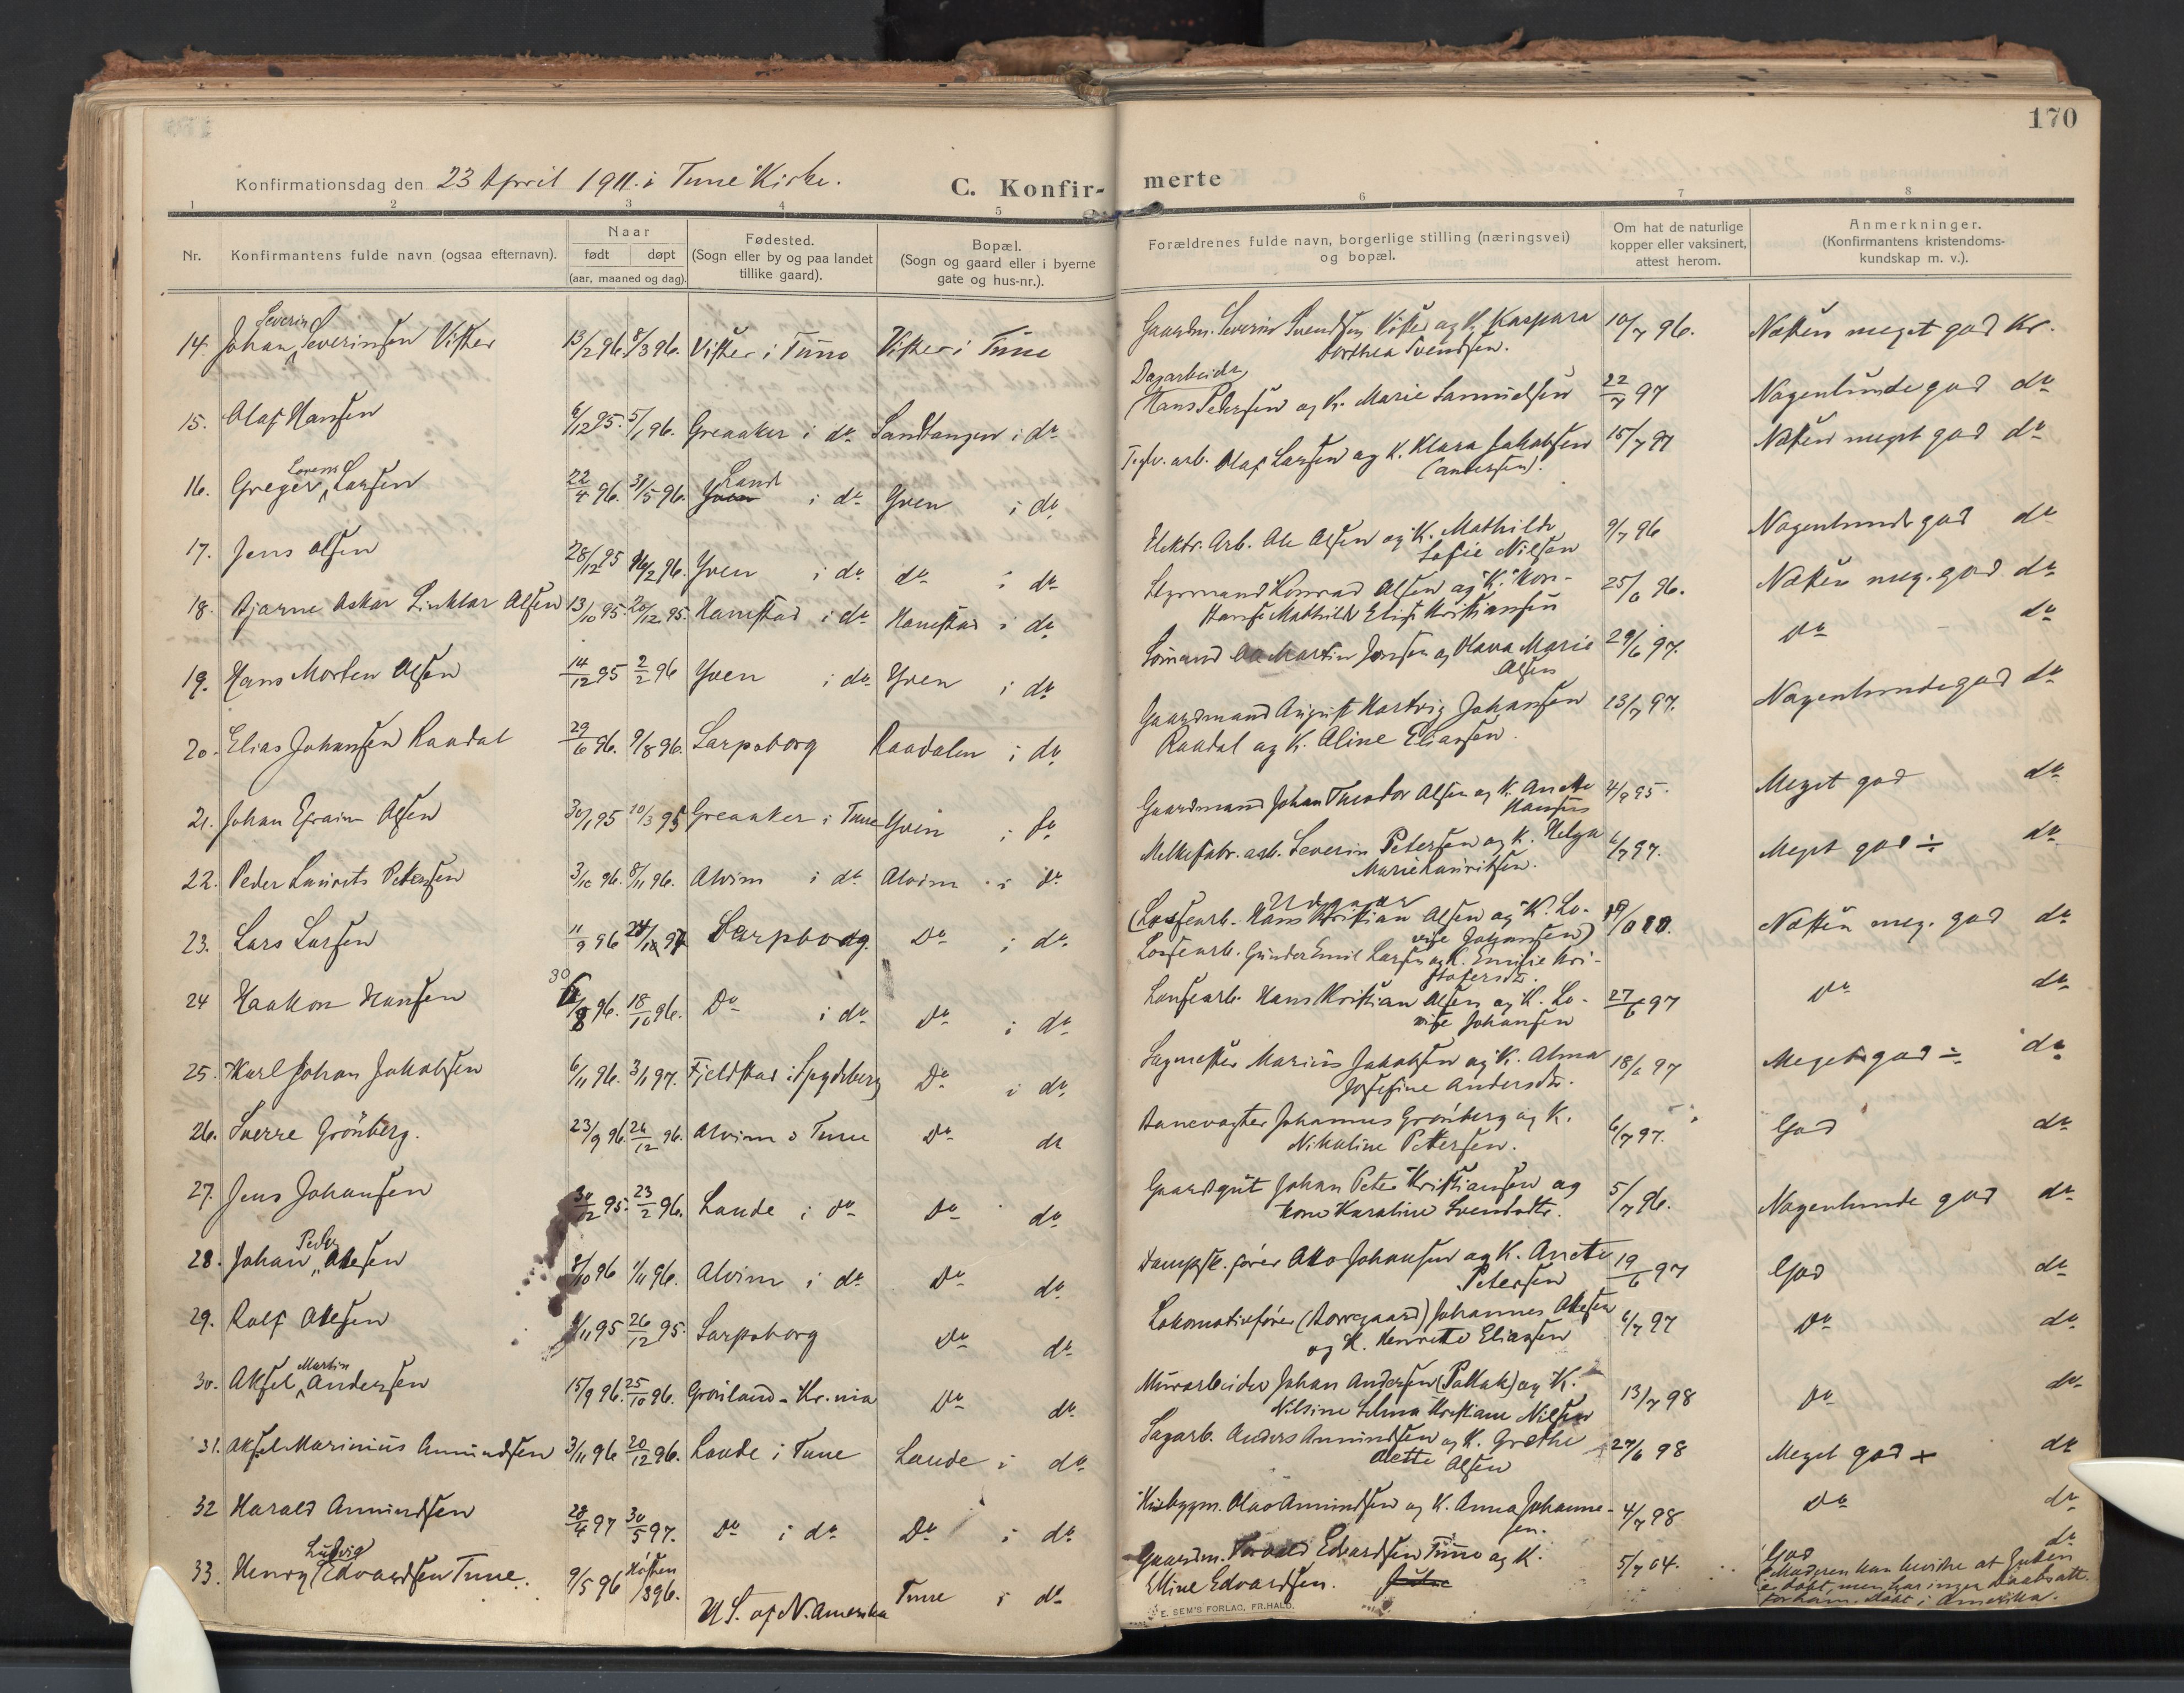 170
Konfirmationsdag den 23 April 1911. i Tune Kirke.
C. Konfir-merte
1 2 3 4 5 6 7 8
Nr.
Konfirmantens fulde navn (ogsaa efternavn).
Naar
født døpt
(aar, maaned og dag).
Fødested.
(Sogn eller by og paa landet
tillike gaard).
Bopæl.
(Sogn og gaard eller i byerne
gate og hus-nr.).
Forældrenes fulde navn, borgerlige stilling (næringsvei)
og bopæl.
Om hat de naturlige
kopper eller vaksinert,
attest herom.
Anmerkninger.
(Konfirmantens kristendoms-
kundskap m. v.).
14. Johan Severin Severinsen Vister 13/2 96. 8/3 96. Vister i Tune Vister i Tune Gaardm. Severin Svendsen Vister og K. Kaspara
Dorthea Svendsen. 10/7 96. Næsten meget god Kr.
15. Olaf Hansen 6/12 95. 5/1 96. Greaaker i do Sandtangen i do Dagarbeider
Hans Petersen og K. Marie Samuelsen 22/7 97 Nogenlunde god do
16. Greger Lorens Larsen 22/4 96. 31/5 96. Lande i do Yven i do Teglv. arb. Olaf Larsen og K. Klara Jakobsen
(Andersen). 15/7 97 Næsten meget god do
17. Jens Olsen 28/12 95 16/2 96. Yven i do do i do Elektr. Arb. Ole Olsen og K. Mathilde
Sofie Nilsen 9/7 96 Nogenlunde god do
18. Bjarne Oskar Linklar Olsen 13/10 95. 26/12 95. Hanestad i do Hanestad i do Styrmand Konrad Olsen og K. Kon-
stanse Mathilde Elise Kristiansen 25/6 96. Næsten meg. god do
19. Hans Morten Olsen 14/12 95 2/2 96 Yven i do Yven i do Sömand Ole Martin Jensen og Olava Marie
Olsen 29/6 97. Do do
20. Elias Johansen Raadal 29/6 96. 9/8 96. Sarpsborg Raadalen i do Gaardmand August Hartvig Johansen
Raadal og K. Aline Eliassen. 13/7 97. Nogenlunde god do
21. Johan Efraim Olsen 30/1 95 10/3 95 Greaaker i Tune Yven i do Gaardmand Johan Theodor Olsen og K. Anette
Hansen 4/9 95. Meget god do
22. Peder Laurits Petersen 3/10 96. 8/11 96. Alvim i do Alvim i do Melkefabr. arb. Severin Petersen og K. Helga
Marie Lauritsen. 6/7 97. Meget god ÷ do
23. Lars Larsen 11/9 96 Sarpsborg. Do i do (Lossearb. Hans Kristian Olsen og K. Lo-
vise Johansen)
Lossearb. Gunder Emil Larsen og K. Emilie Kri-
stofersdtr. Næsten meg. god do
24 Haakon Hansen 30/8 96. 18/10 96. Do i do Do i do Lossearb. Hans Kristian Olsen og K. Lo-
vise Johansen 27/6 97 Do do
25. Karl Johan Jakobsen 6/11 96. 3/1 97. Fjeldstad i Spydeberg Do i do Sagmester Marius Jakobsen og K. Alma
Josefine Andersdtr. 18/6 97 Meget god ÷ do
26. Sverre Grönberg. 23/9 96. 26/12 96. Alvim i Tune Do do Banevogter Johannes Grönberg og K.
Nikoline Pettersen. 6/7 97. God do
27. Jens Johansen 30/12 95. 23/2 96. Lande i do Do do Gaardgut Johan Peter Kristiansen og
kone Karoline Svendsdtr. 5/7 96. Nogenlunde god do
28. Johan Peder Ottesen 8/10 96 1/11 96. Alvim i do Do do Dampsk. förer Otto Johansen og K. Anette
Petersen 19/6 97 God do
29. Rolf Ottesen 8/11 95 26/12 95. Sarpsborg Do do Lokomotivförer (Borregaard) Johannes Ottesen
og K. Henriette Eliassen 6/7 97 Do do
30. Aksel Martin Andersen 15/9 96. 25/10 96. Grönland - Kr.nia Do do Murarbeider Johan Andersen (Pollak) og K.
Nilsine Selma Kristiane Nilsen 13/7 98 Do do
31. Aksel Marinius Amundsen 3/11 96 20/12 96. Lande i Tune Lande i do Sagarb. Anders Amundsen og K. Grethe
Olette Olsen 27/6 98 Meget god + do
32 Harald Amundsen 28/4 97 30/5 97. Do i do Do i do Husbygm. Olav Amundsen og K. Anna Johanne-
sen. 4/7 98 Do do
33. Henry Ludvig Edvardsen Tune. 9/5 96 Hösten 1896. U.S. of N. Amerika Tune i do Gaardm. Torvald Edvardsen Tune og K.
Elline Edvardsen. 5/7 04. God do
Moderen kan bevidne at Gutten
er döbt, men har ingen Daabsatt.
for ham. Döbt i Amerika.
E. SEM'S FORLAG, FR.HALD.